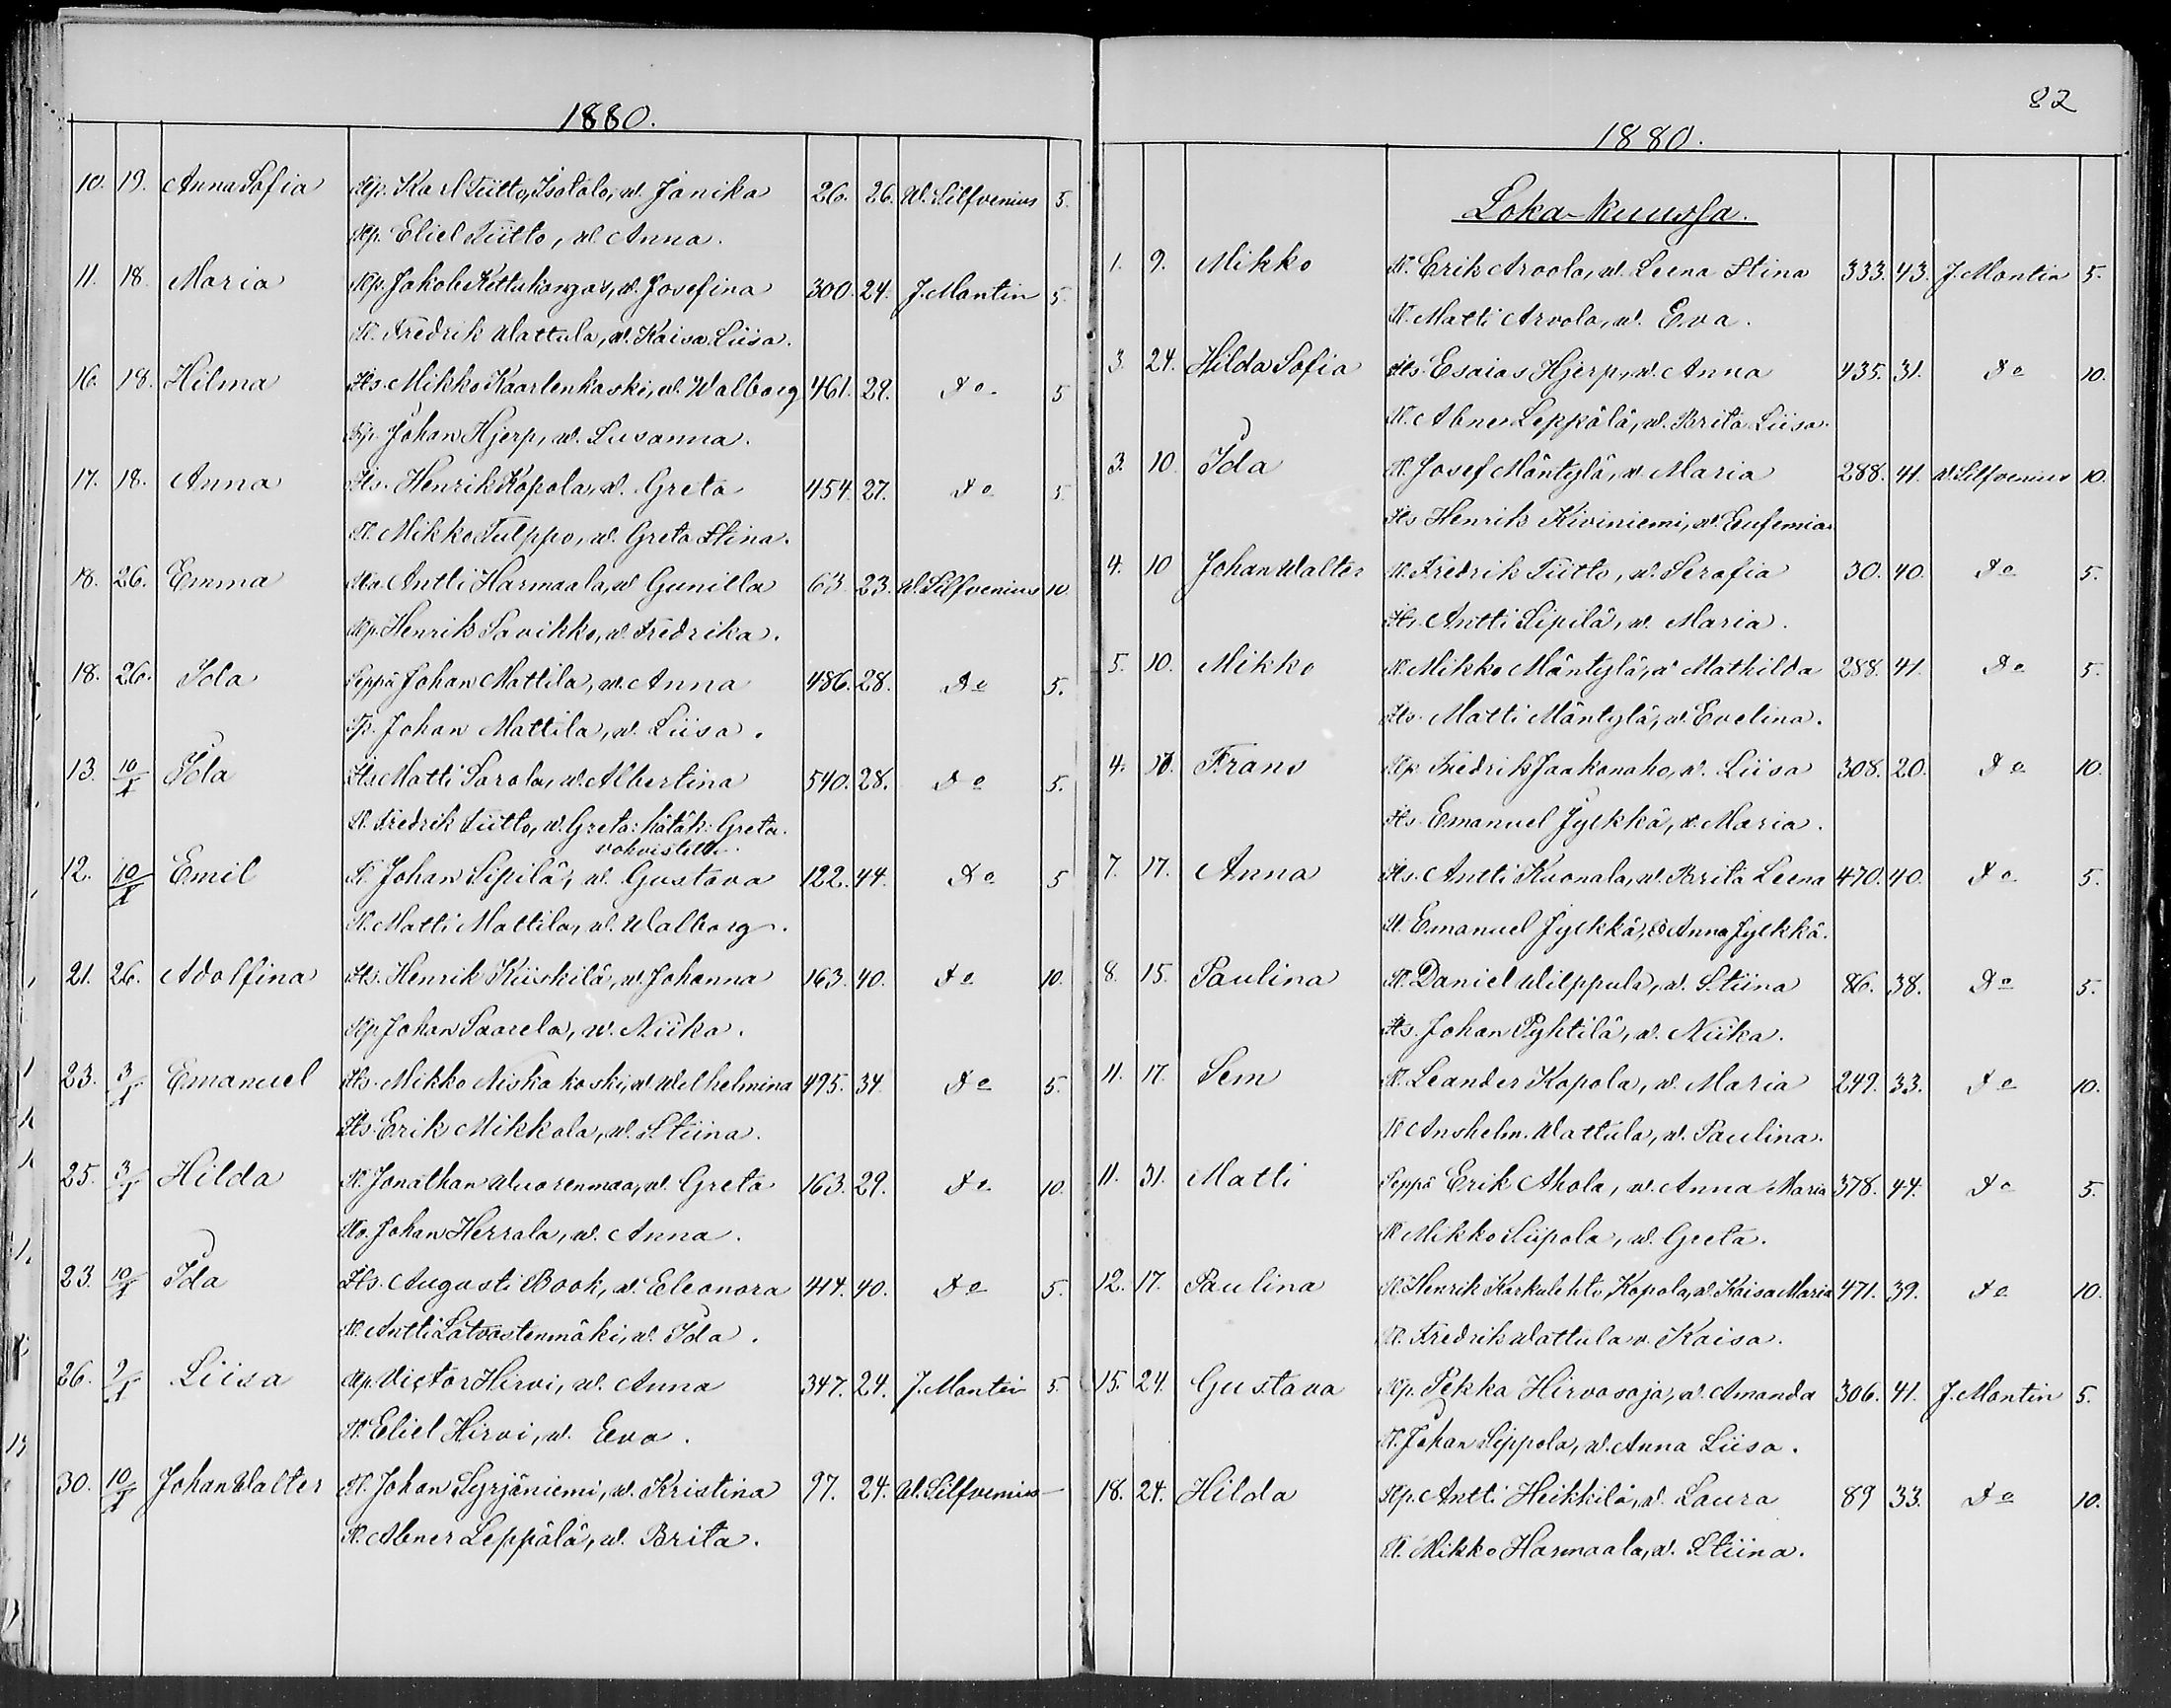 1880.
10. 19. Anna Sofia Kp. Karl Tiitto, Isotalo, w. Janika 26. 26. W. Silfvenius 5.
Kp. Eliel Tiitto, w. Anna.
11. 18. Maria Kp. Jakob Kettukangas, w. Josefina 300. 24. J. Montin 5.
K. Fredrik Wattula, w. Kaisa Liisa.
16. 18. Hilma Its. Mikko Kaarlenkaski, w. Walborg 461. 29. Do 5
Kp. Johan Hjerp, w. Susanna.
17. 18. Anna Its. Henrik Kopola, w. Greta 454. 27. Do 5.
K. Mikko Tulppo, w. Greta Stina.
18. 26. Emma Antti Harmaala, w Gunilla 63. 23. W. Silfvenius 10
Kp. Henrik Savikko, w. Fredrika.
18. 26. Ida Seppä Johan Mattila, w. Anna 486. 28. Do 5.
Kp. Johan Mattila, w. Liisa.
13. 10/X Ida Its. Matti Sarola, w. Albertina 540. 28. Do 5.
K. Fredrik Tiitto, w. Greta: hätäk: Greta.
vahvistettu
12. 10/X Emil K. Johan Sipilä, w. Gustava 122. 44. Do 5
K. Matti Mattila, w. Walborg.
21. 26. Adolfina Its. Henrik Kiiskilä, w. Johanna 163. 40. Do 10.
Kp. Johan Saarela, w. Niika.
23. 3/X Emanuel Its. Mikko Niskakoski, w. Wilhelmina 495. 34. Do 5.
Its. Erik Mikkola, w. Stiina.
25. 3/X Hilda K. Jonathan Wuorenmaa, w. Greta 163. 29. Do 10.
Johan Herrala, w. Anna.
23. 10/X Ida Its. Augusti Book, w. Eleonora 414. 40. Do 5.
K. Antti Latvastenmäki, w. Ida.
26. 9/X Liisa Kp. Victor Hirvi, w. Anna 347. 24. J. Montin 5.
K. Eliel Hirvi, w. Eva.
30. 10/X Johan Walter K. Johan Syrjäniemi, w. Kristina 97. 24. W. Silfvenius —
K. Abner Leppälä, w. Brita.
82
1880.
Loka-kuussa.
1. 9. Mikko K. Erik Arvola, w. Leena Stina 333. 43. J. Montin 5.
K. Matti Arvola, w. Eva.
3. 24. Hilda Sofia Its. Esaias Hjerp, w. Anna 435. 31. Do 10.
K. Abner Leppälä, w. Brita Liisa.
3. 10. Ida K. Josef Mäntylä, w. Maria 288. 41. W. Silfvenius 10.
Its Henrik Kiviniemi, w. Eufemia
4. 10 Johan Walter K. Fredrik Tiitto, w. Serafia 30. 40. Do 5.
Its. Antti Sipilä, w. Maria.
5. 10. Mikko K. Mikko Mäntylä, w Mathilda 288. 41. Do 5.
Its. Matti Mäntylä, w. Evelina.
4. 10. Frans Kp. Fredrik Jaakonaho, w. Liisa 308. 20. Do 10.
Its. Emanuel Jylkkä, w. Maria.
7. 17. Anna Its. Antti Kuonala, w. Brita Leena 470. 40. Do 5.
K. Emanuel Jylkkä, & Anna Jylkkä.
8. 15. Paulina K. Daniel Wilppula, w. Stiina 86. 38. Do 5.
Its. Johan Pyhtilä, w. Niika.
11. 17. Sem K. Leander Kopola, w. Maria 249. 33. Do 10.
K Anshelm Wattula, w. Paulina.
11. 31. Matti Seppä Erik Ahola, w. Anna Maria 378. 44. Do 5.
K Mikko Siipola, w. Greta.
12. 17. Paulina K. Henrik Karkulehto, Kopola, w. Kaisa Maria 471. 39. Do 10.
K. Fredrik Wattula w. Kaisa.
15. 24. Gustava Kp. Pekka Hirvasoja, w. Amanda 306. 41. J. Montin 5.
K. Johan Sippola, w. Anna Liisa.
18. 24. Hilda Kp. Antti Heikkilä, w. Laura 89 33. Do 10.
K. Mikko Harmaala, w. Stiina.